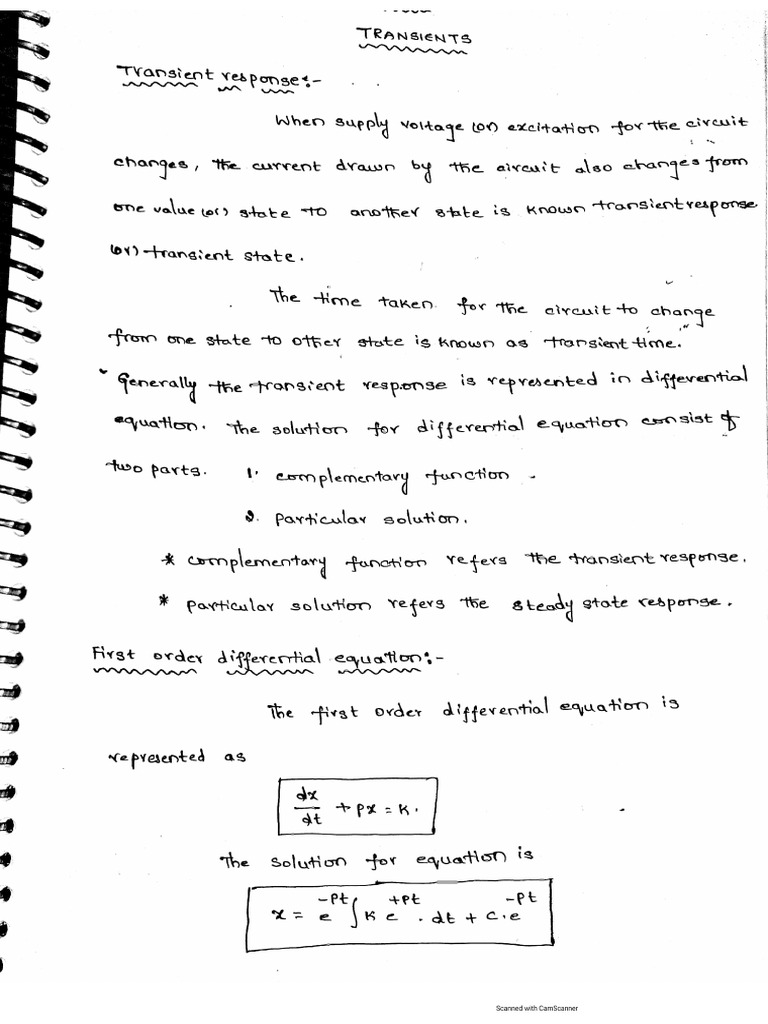 TRANSIENTS
Transient response:-
When supply voltage (or) excitation for the circuit
changes, the current drawn by the circuit also changes from
one value (or) state to another state is known transient response
(or) transient state.
The time taken for the circuit to change
from one state to other state is known as transient time.
Generally the transient response is represented in differential
equation. The solution for differential equation consist of
two parts. 1. complementary function.
2. particular solution.
* complementary function refers the transient response.
* particular solution refers the steady state response.
First order differential equation:-
The first order differential equation is
represented as
dx/dt + px = k.
The solution for equation is
x = e^-pt ∫ k e^+pt . dt + c.e^-pt
Scanned with CamScanner